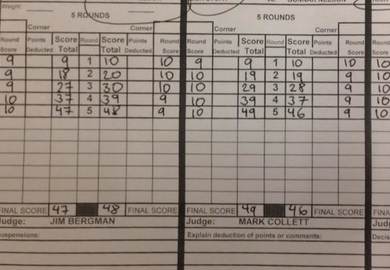 Weight:
5 ROUNDS 5 ROUNDS
Corner Corner Corner Corner
Round Score Points Deducted Score Total Round Score Total Points Deducted Round Score Round Score Points Deducted Score Total Round Score Total Points Deducted Round Score Round Score
9 9 1 10 10 9 9 1 10 10 9
9 18 2 20 10 10 19 2 19 9 10
9 27 3 30 10 10 29 3 28 9 10
10 37 4 39 9 10 39 4 37
10 47 5 48 9 10 49 5 46
FINAL SCORE 47 48 FINAL SCORE FINAL SCORE 49 46 FINAL SCORE FINAL
Judge: JIM BERGMAN Judge: MARK COLLETT Judge
Explain deduction of points or comments: